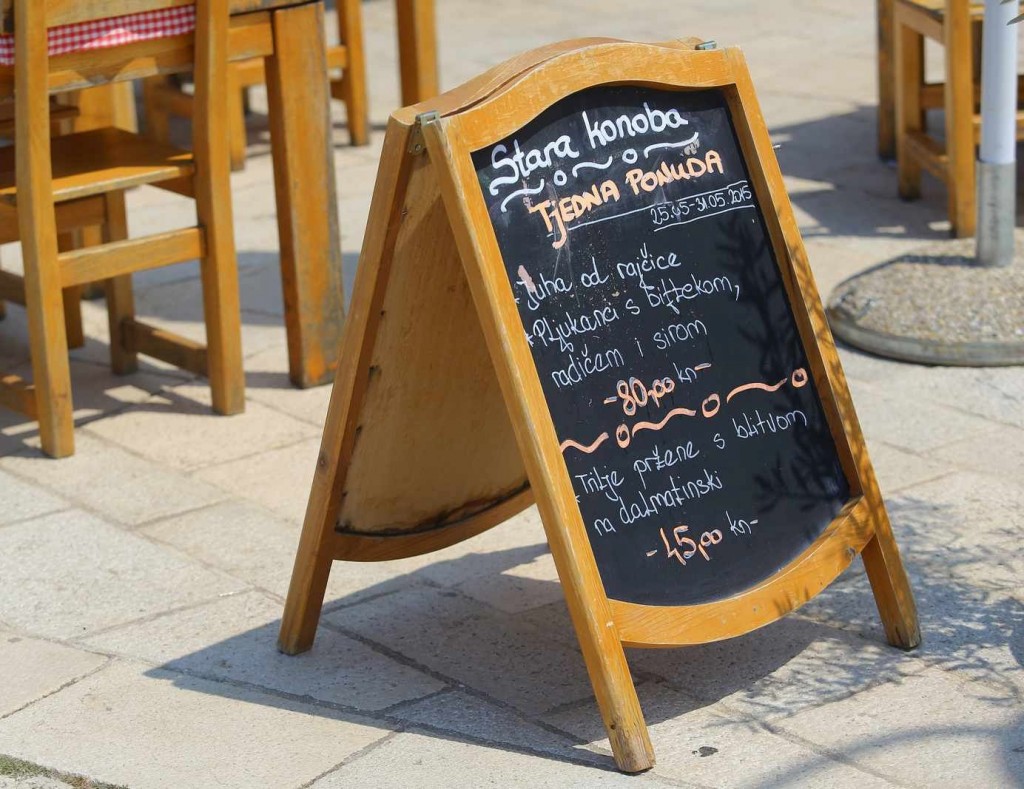 Stara Konoba
TJEDNA PONUDA
25.05-31.05.2015
-Juha od rajčice
*Pljukanci s biftekom,
radičem i sirom
-80,00 kn-
-Trilje pržene s blitvom
na dalmatinski
-45,00 kn-